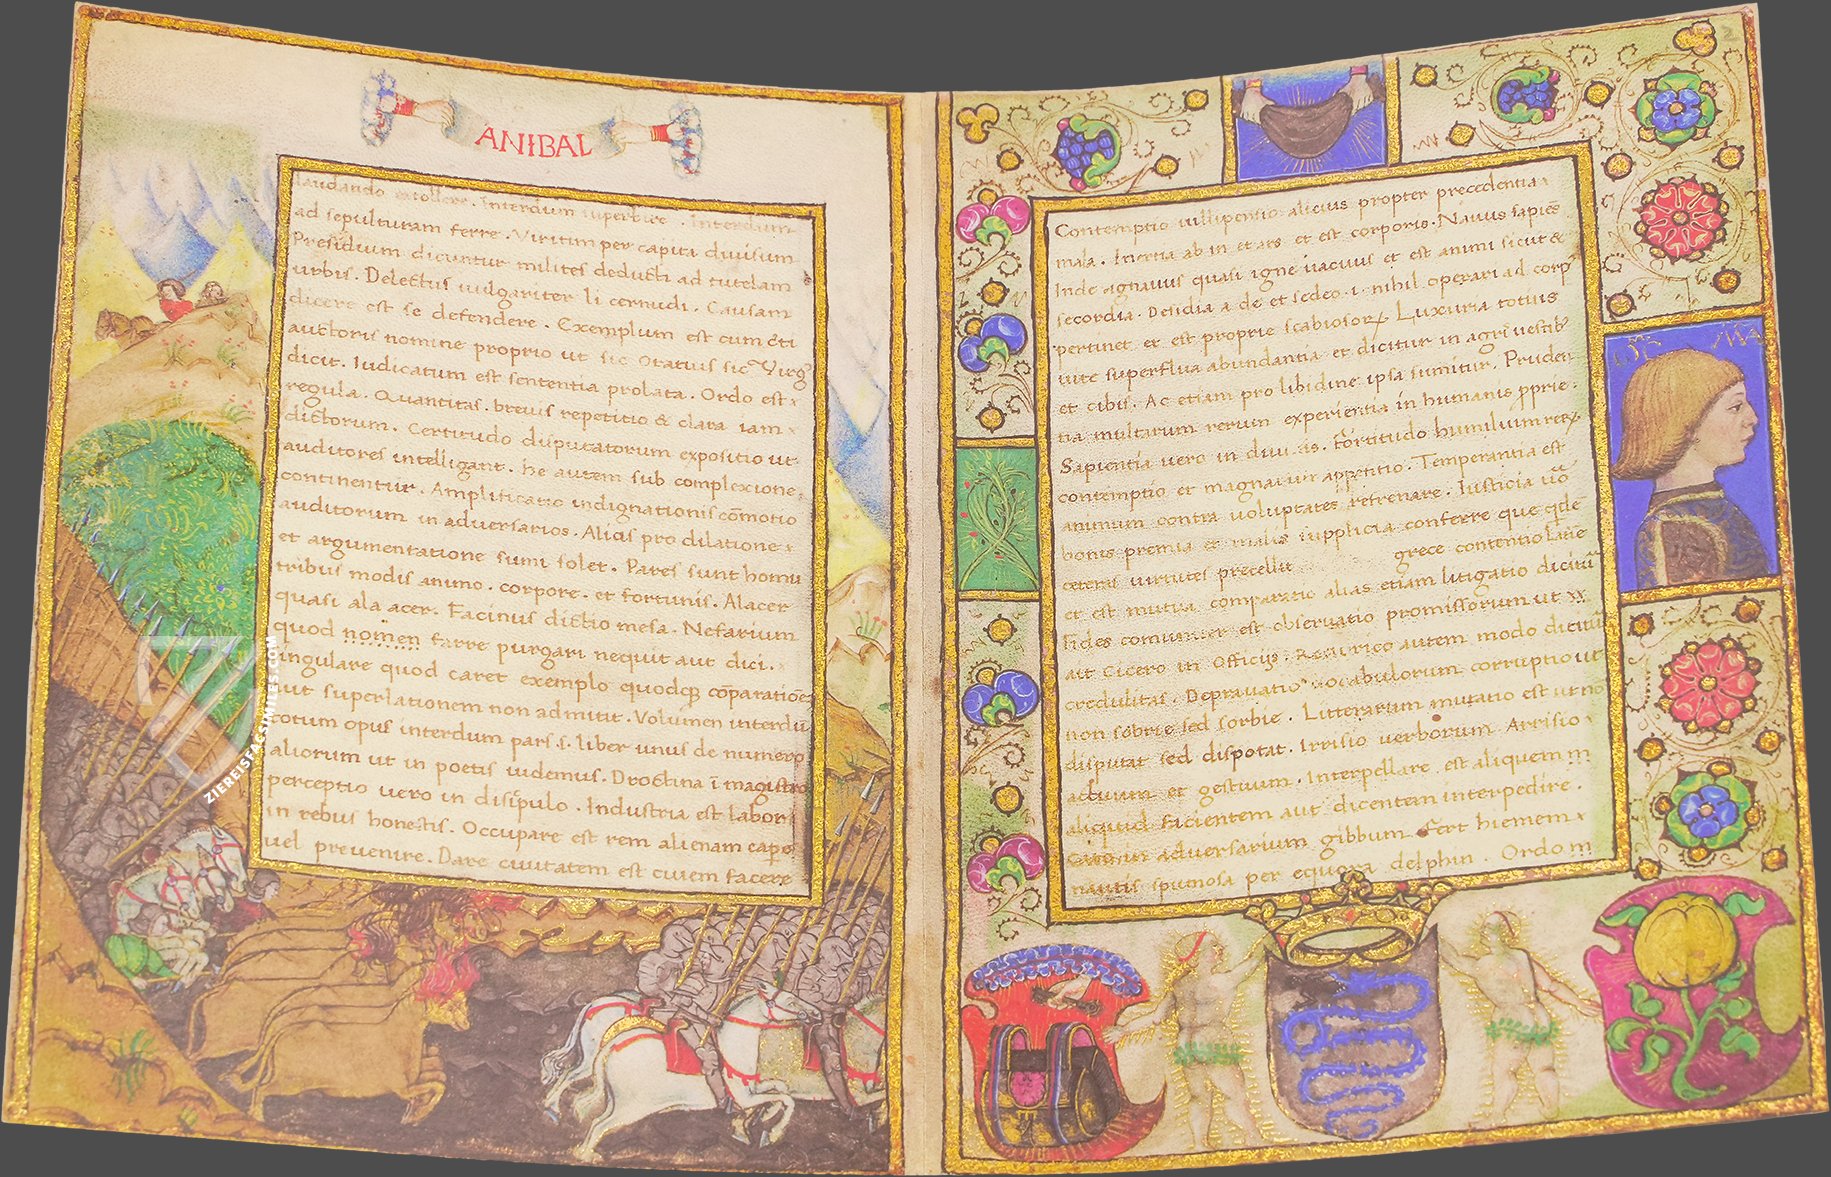 ANIBAL
laudando extollere. Interdum superbire. Interdum
ad sepulturam ferre. Viritim per capita diuisum
Presidium dicuntur milites deducti ad tutelam
urbis. Delectus uulgariter li cernudi. Causam
dicere est se defendere. Exemplum est cum
auctoris nomine proprio ut sic Oratius sic Virg
dicit. Iudicatum est sententia prolata. Ordo est
regula. Quantitas. breuis repetitio & clara iam
dictorum. Certitudo disputatorum expositio ut
auditores intelligant. he autem sub complexione
continentur. Amplificatio indignationis cōmotio
auditorum in adversarios. Alias pro dilatione
et argumentatione sumi solet. Pares sunt homi
tribus modis animo. corpore. et fortunis. Alacer
quasi ala acer. Facinus dictio mesa. Nefarium
quod nomen farre purgari nequit aut dici.
singulare quod caret exemplo quodq; cōparatioē
aut superlationem non admittit. Volumen interdū
totum opus interdum pars .s. liber unus de numero
aliorum ut in poetis uidemus. Doctrina ī magistro
perceptio uero in discipulo. Industria est labor
in rebus honestis. Occupare est rem alienam capē
uel preuenire. Dare ciuitatem est ciuem facere
2
Contemptio uillipensio alicuius propter precedentia
mala. Inertia ab in et ars et est corporis. Nauus sapiēs
Inde agnauus quasi igne uacuus et est animi sicut &
secordia. Desidia a de et sedeo .i. nihil operari ad corp
pertinet et est proprie scabiosor. Luxuria totius
uite superflua abundantia et dicitur in agri uestib
et cibis. Ac etiam pro libidine ipsa sumitur. Pruden
tia multarum rerum experientia in humanis pprie
Sapientia uero in diuinis. fortitudo humilium rer
contemptio et magnarum appetitio. Temperantia est
animum contra uoluptates refrenare. Iusticia uō
bonis premia et malis supplicia conferre que qdē
ceteris uirtutes precellit grece contentio latīe
et est mutua comparatio alias etiam litigatio dicitū
Fides comuniter est obseruatio promissorum ut
ait Cicero in Officijs. Recurrico autem modo dicitū
credulitas. Deprauatio uocabulorum corruptio ut
non sobrie sed sorbie. Litterarum mutatio est ut no
disputat sed dispotat. Irrisio uerborum. Arrisio
actuum et gestuum. Interpellare est aliquem
aliquid facientem aut dicentem interpedire.
in aduersarium gibbum fert hiemem
nautis spumosa per equora delphin. Ordo
MA
ZIEREISFACSIMILES.COM